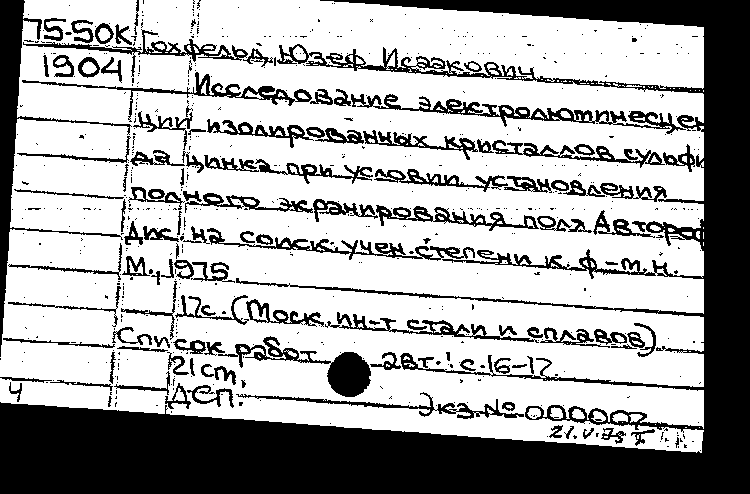 75-50К Гохфельд, Юзеф Исаакович
1904
Исследование электролюминесцен
ции изолированных кристаллов сульфи
да цинка при условии установления
полного экранирования поля Автореф
дис. на соиск. учен. степени к. ф-м.н.
М., 1975.
17с. (Моск. ин-т стали и сплавов)
Список работ авт.: с.16-17
21 cm.
ДСП.
4 Экз. № 000007
21.V.75